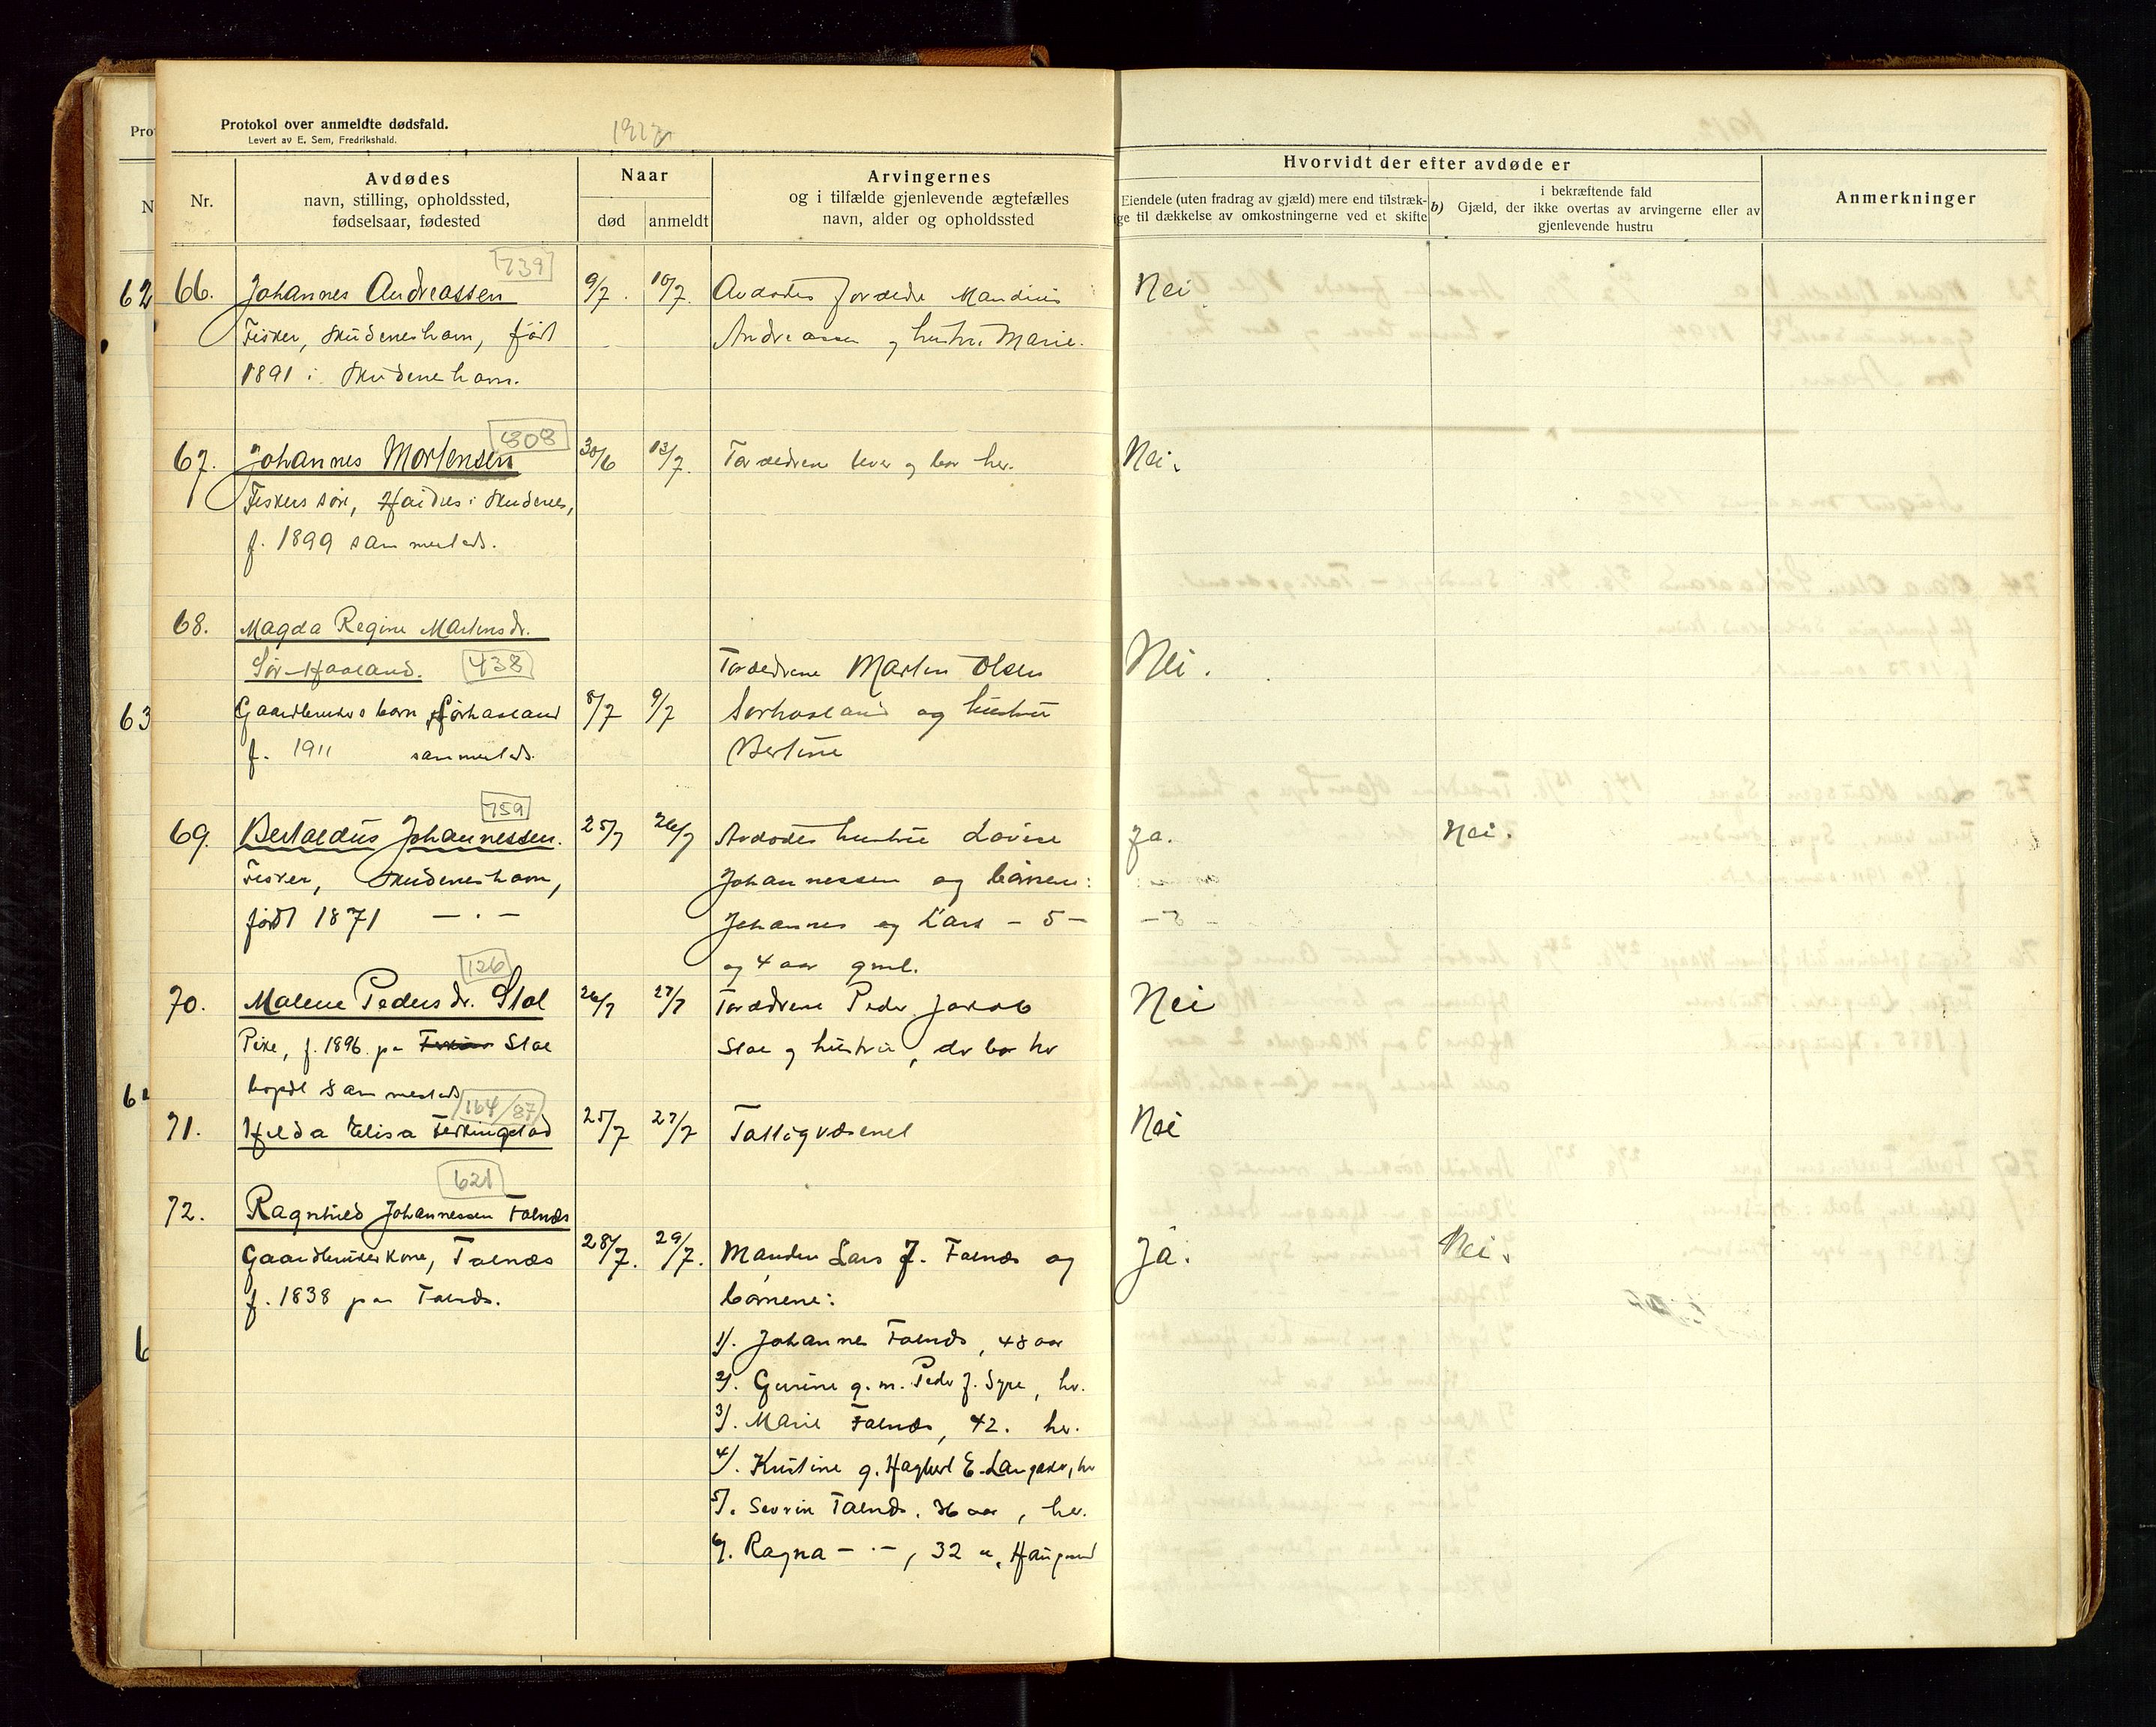 Protokol over anmeldte dødsfald.
Levert av E. Sem, Fredrikshald.
Nr.
Avdødes
navn, stilling, opholdssted,
fødselsaar, fødested
Naar
død
anmeldt
Arvingernes
og i tilfælde gjenlevende ægtefælles
navn, alder og opholdssted
Hvorvidt der efter avdøde er
Eiendele (uten fradrag av gjæld) mere end tilstræk-
ge til dækkelse av omkostningerne ved et skifte
b)
i bekræftende fald
Gjæld, der ikke overtas av arvingerne eller av
gjenlevende hustru
Anmerkninger
739
66. Johannes Andreassen 9/7. 10/7. Avdødes forældre Mandius Nei
Fisker, Skudeneshavn, født Andreassen og hustru Marie.
1891 i Skudeneshavn.
808
67. Johannes Mortensen 30/6 13/7. Forældrene lever og bor her. Nei.
Fiskers søn, i Skudenes,
f. 1899 sammesteds.
68. Magda Regine Martinsdr.
Sør-Haaland. 438 Forældrene Martin Olsen Nei.
Gaardbrukers barn, Sørhaaland 8/7 9/7 Sørhaaland og hustru
f. 1911 sammesteds. Bertine
759
69. Bertaldus Johannessen. 25/7 26/7 Avdødes hustru Lovise Ja. Nei.
Fisker, Skudeneshavn, Johannessen og børnene:
født 1871 — . — Johannes og Lars - 5 -
og 4 aar gml.
126
70. Malene Pedersdr. Stol 26/7 27/7 Forældrene Peder Jakob Nei
Pike, f. 1896 pa Stol Stol og hustru, der bor her
bopæl sammesteds
164/87
71. Hilda Elisa Ferkingstad 25/7 27/7 Fattigvæsenet Nei
621
72. Ragnhild Johannessen Falnæs
Gaardbrukerkone, Falnæs 28/7. 29/7. Manden Lars J. Falnæs og Ja. Nei.
f. 1838 paa Falnæs. børnene:
1). Johannes Falnæs, 48 aar
2). Gurine g. m. Peder J. Syre, her.
3). Marie Falnæs, 42. her.
4). Kristine g. E. Langaker, her
5). Severin Falnæs. 36 aar, her.
6). Ragna — . —, 32 ", Haugesund
62
63